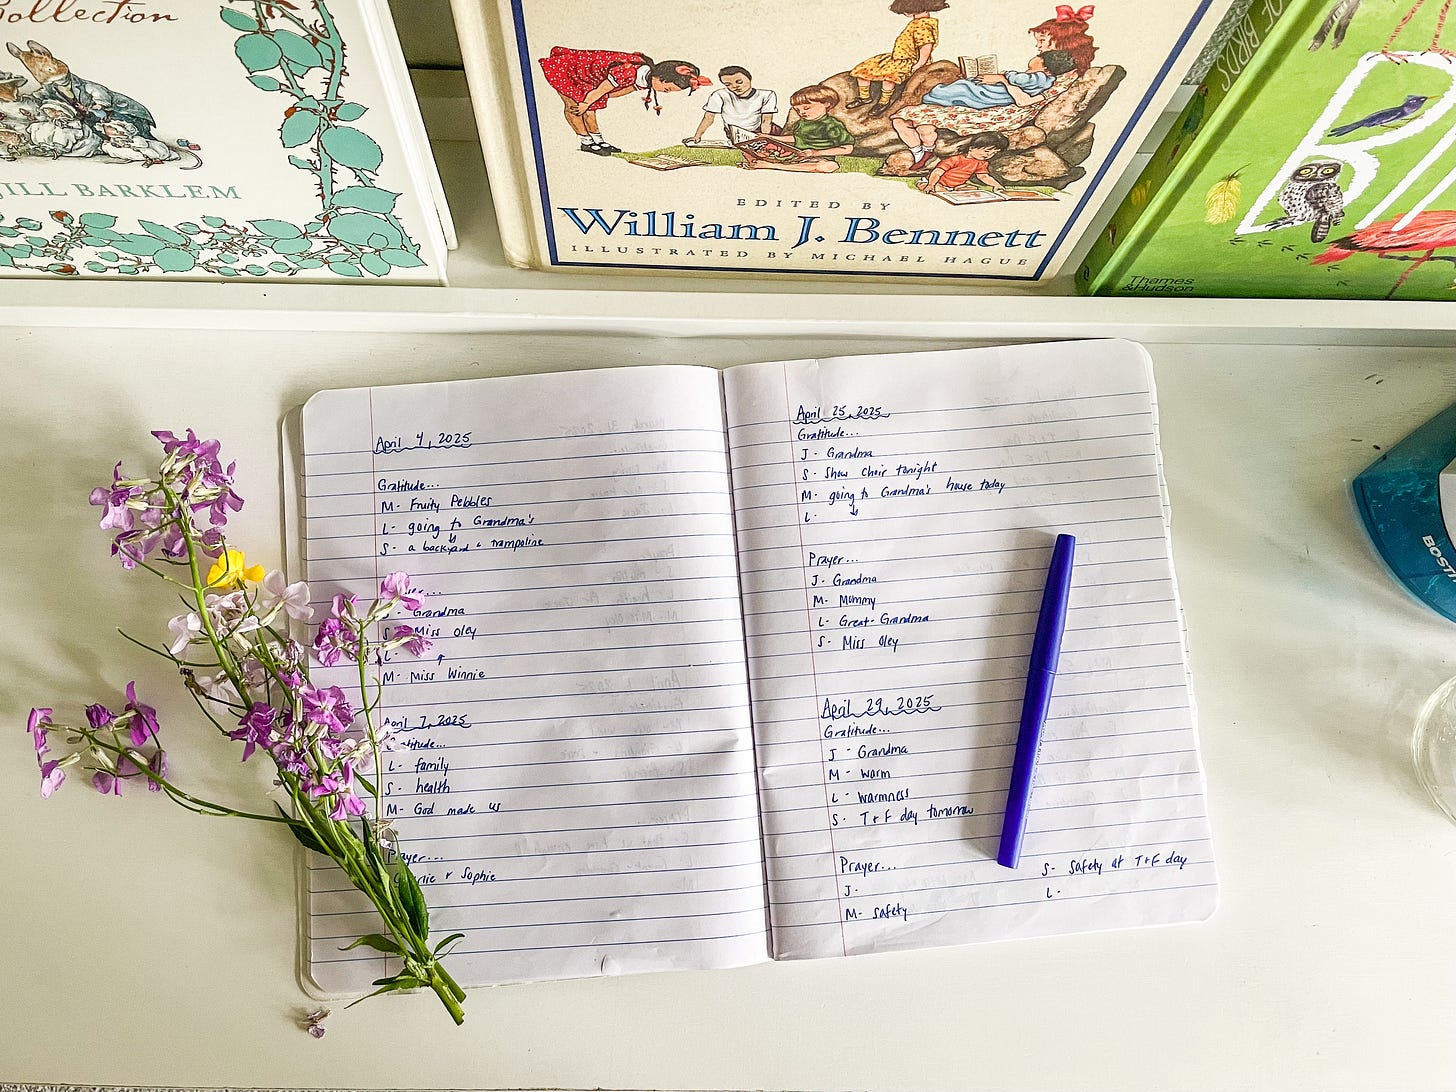 Collection
JILL BARKLEM
EDITED BY
William J. Bennett
ILLUSTRATED BY MICHAEL HAGUE
OF BIRDS
Thames
& Hudson
BI
April 4, 2025
Gratitude...
M- Fruity Pebbles
L- going to Grandma's
S- a backyard & trampoline
Grandma
S- Miss Oley
L-
M- Miss Winnie
April 7, 2025
L- family
S- health
M- God made us
Prayer...
& Sophie
April 25, 2025
Gratitude...
J- Grandma
S- Show Choir tonight
M- going to Grandma's house today
L-
Prayer...
J- Grandma
M- Mommy
L- Great-Grandma
S- Miss Oley
April 29, 2025
Gratitude...
J- Grandma
M- warm
L- warmness
S- T+F day tomorrow
Prayer...
J-
M- safety
S- safety at T+F day
L-